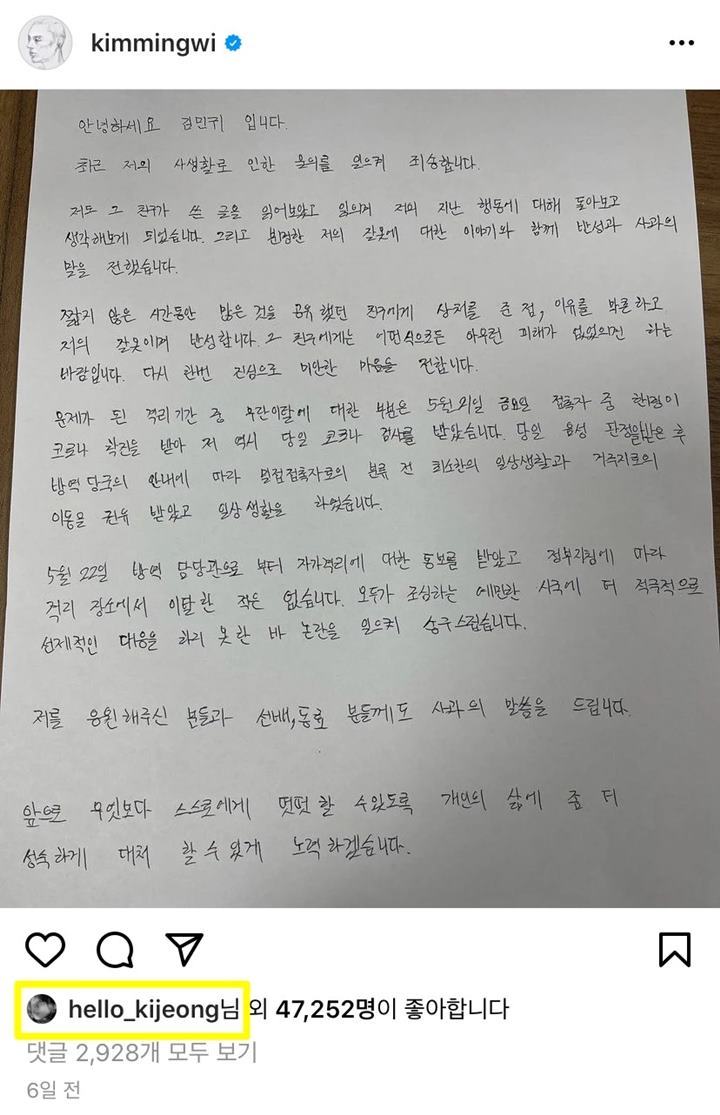 kimmingwi
안녕하세요 김민귀 입니다.
최근 저의 사생활로 인한 물의를 일으켜 죄송합니다.
저도 그 친구가 쓴 글을 읽어보았고 읽으며 저의 지난 행동에 대해 돌아보고
생각해보게 되었습니다. 그리고 분명한 저의 잘못에 대한 이야기와 함께 반성과 사과의
말을 전했습니다.
짧지 않은 시간동안 많은 것을 공유했던 친구에게 상처를 준 점, 이유를 막론하고
저의 잘못이며 반성합니다. 그 친구에게는 어떤식으로든 아무런 피해가 없었으면 하는
바람입니다. 다시 한번 진심으로 미안한 마음을 전합니다.
문제가 된 격리기간 중 무단이탈에 대한 부분은 5월 21일 금요일 접촉자 중 한명이
코로나 확진을 받아 저 역시 당일 코로나 검사를 받았습니다. 당일 음성 판정을받은 후
방역 당국의 안내에 따라 밀접접촉자로의 분류 전 최소한의 일상생활과 거주지로의
이동을 권유 받았고 일상생활을 하였습니다.
5월 22일 방역 담당관으로 부터 자가격리에 대한 통보를 받았고 정부지침에 따라
격리 장소에서 이탈한 적은 없습니다. 모두가 조심하는 예민한 시국에 더 적극적으로
선제적인 대응을 하지 못한 바 논란을 일으켜 송구스럽습니다.
저를 응원해주신 분들과 선배,동료 분들께도 사과의 말씀을 드립니다.
앞으로 무엇보다 스스로에게 떳떳 할 수있도록 개인의 삶에 좀 더
성숙하게 대처 할 수 있게 노력하겠습니다.
hello_kijeong님 외 47,252명이 좋아합니다
댓글 2,928개 모두 보기
6일 전